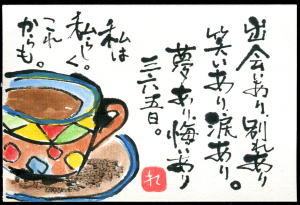 出会いあり、別れあり
笑いあり、涙あり。
夢あり、悔いあり
三六五日。
私は
私らしく。
これ
からも。